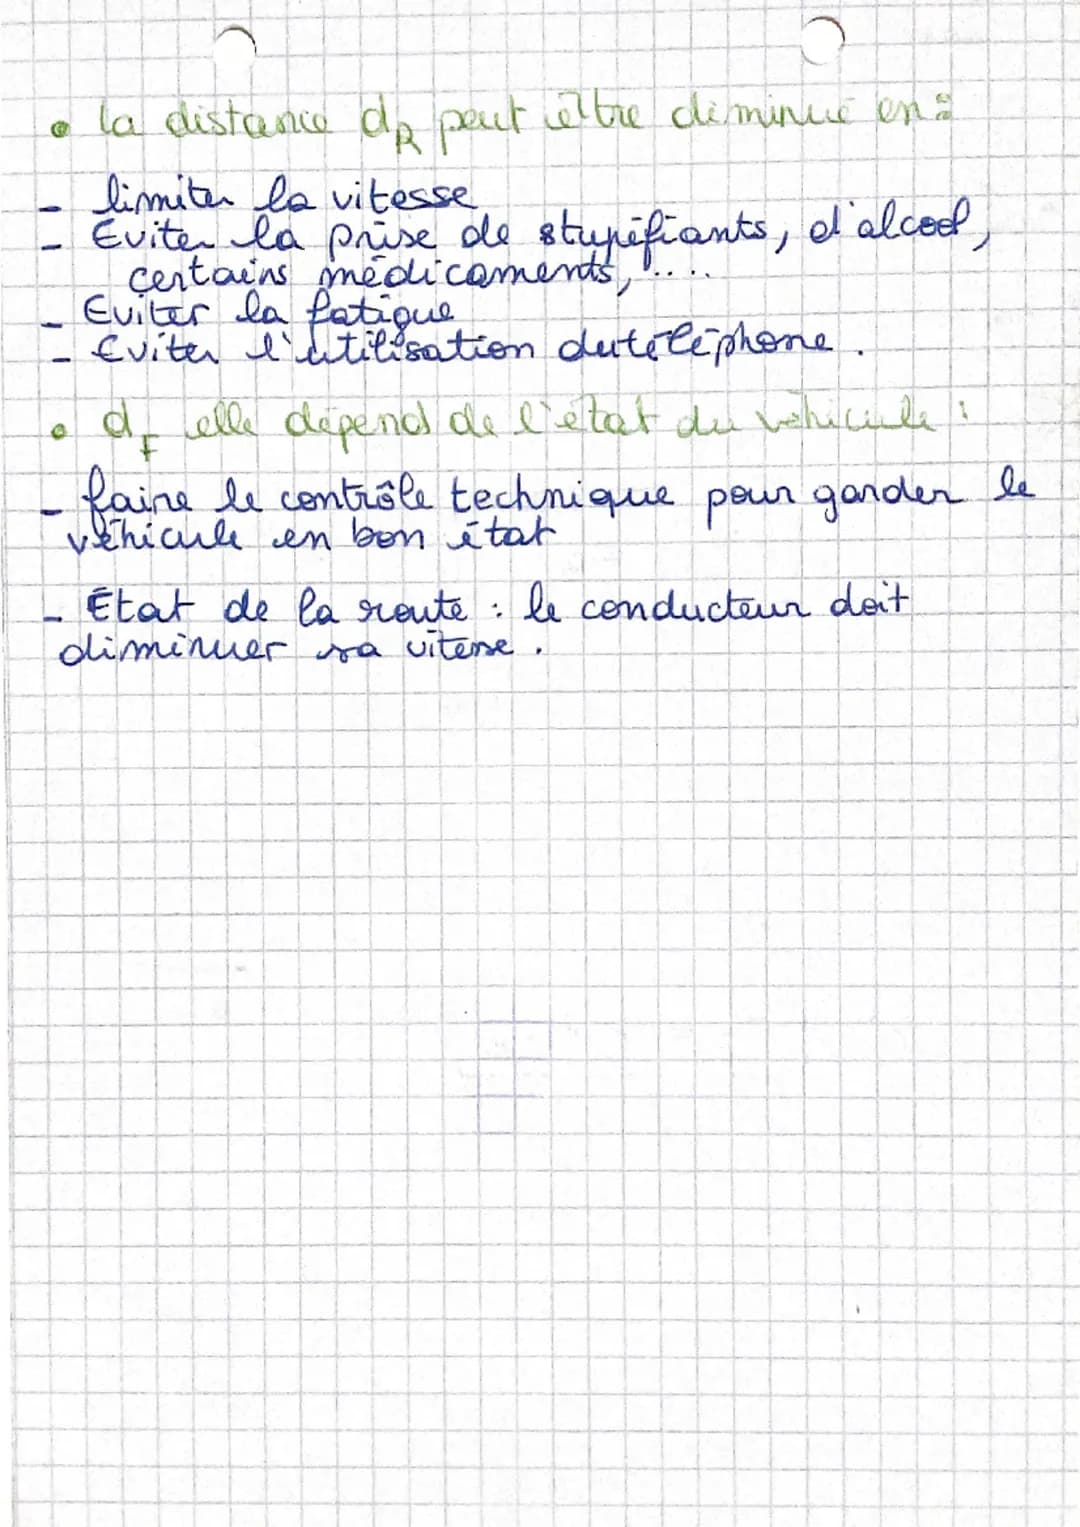 • la distance dR peut être diminué en :
- limiter la vitesse
- Eviter la prise de stupéfiants, d'alcool,
certains médicaments, ....
- Eviter la fatigue
- Eviter l'utilisation du téléphone.
• dF elle dépend de l'état du véhicule :
- faire le contrôle technique pour garder le
véhicule en bon état
- Etat de la route : le conducteur doit
diminuer sa vitesse.